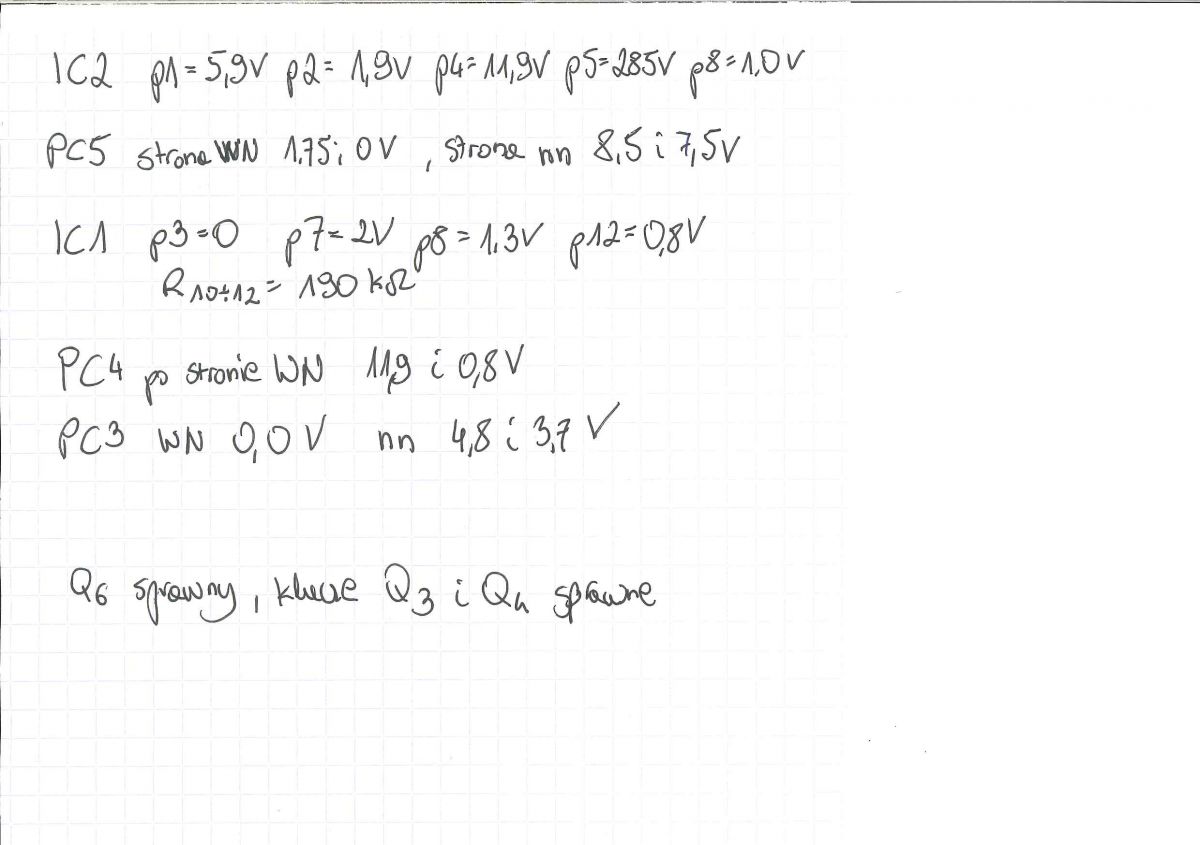 IC2 p1=5,9V p2= 1,9V p4=11,9V p5=285V p8=1,0V
PC5 strona WN 1,75 i 0V , strona nn 8,5 i 7,5V
IC1 p3=0 p7=2V p8=1,3V p12=0,8V
R10÷12= 190 kΩ
PC4 po stronie WN 11,9 i 0,8V
PC3 WN 0,0V nn 4,8 i 3,7V
Q6 sprawny, klucze Q3 i Q4 sprawne